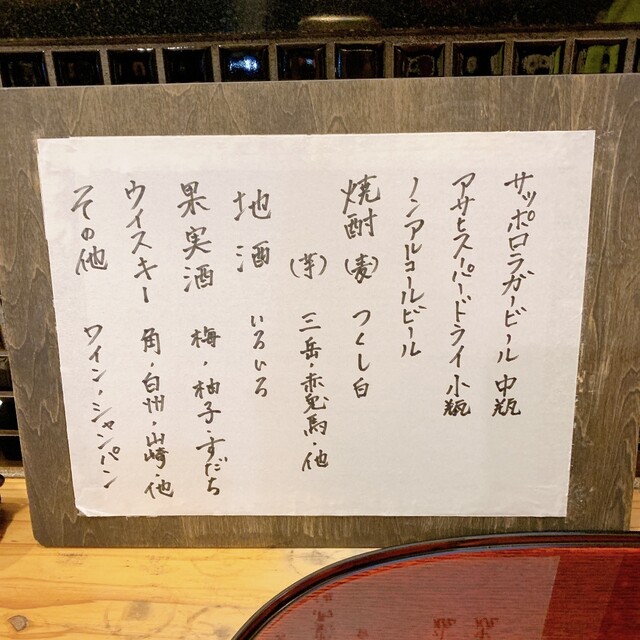 サッポロラガービール 中瓶
アサヒスーパードライ 小瓶
ノンアルコールビール
焼酎(麦) つくし白
(芋) 三岳・赤兎馬・他
地酒 いろいろ
果実酒 梅・柚子・すだち
ウイスキー 角・白州・山崎 他
その他 ワイン・シャンパン